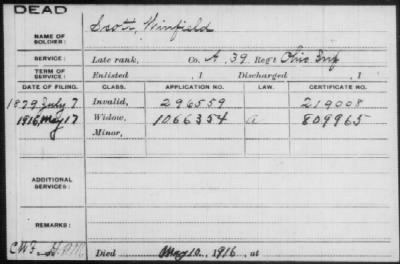 DEAD
NAME OF SOLDIER: Scott, Winfield
SERVICE: Late rank, Co. A, 39. Reg't Ohio Inf
TERM OF SERVICE: Enlisted , 1 Discharged , 1
DATE OF FILING. CLASS. APPLICATION NO. LAW. CERTIFICATE NO.
1879 July 7 Invalid, 296559 219008
1916, May 17 Widow, 1066354 a 809965
Minor,
ADDITIONAL SERVICES:
REMARKS:
Died May 10, 1916, at